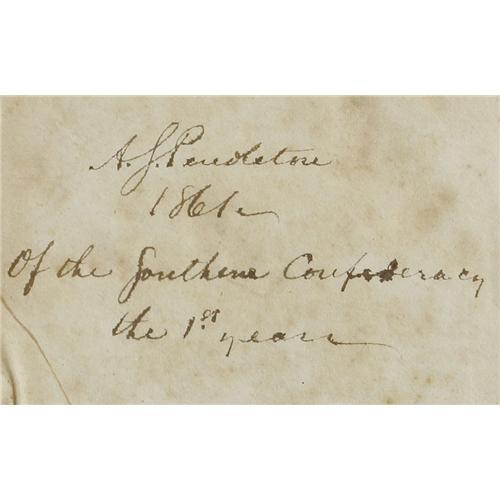 A. S. Pendleton
1861.
Of the Southern Confederacy
the 1st year